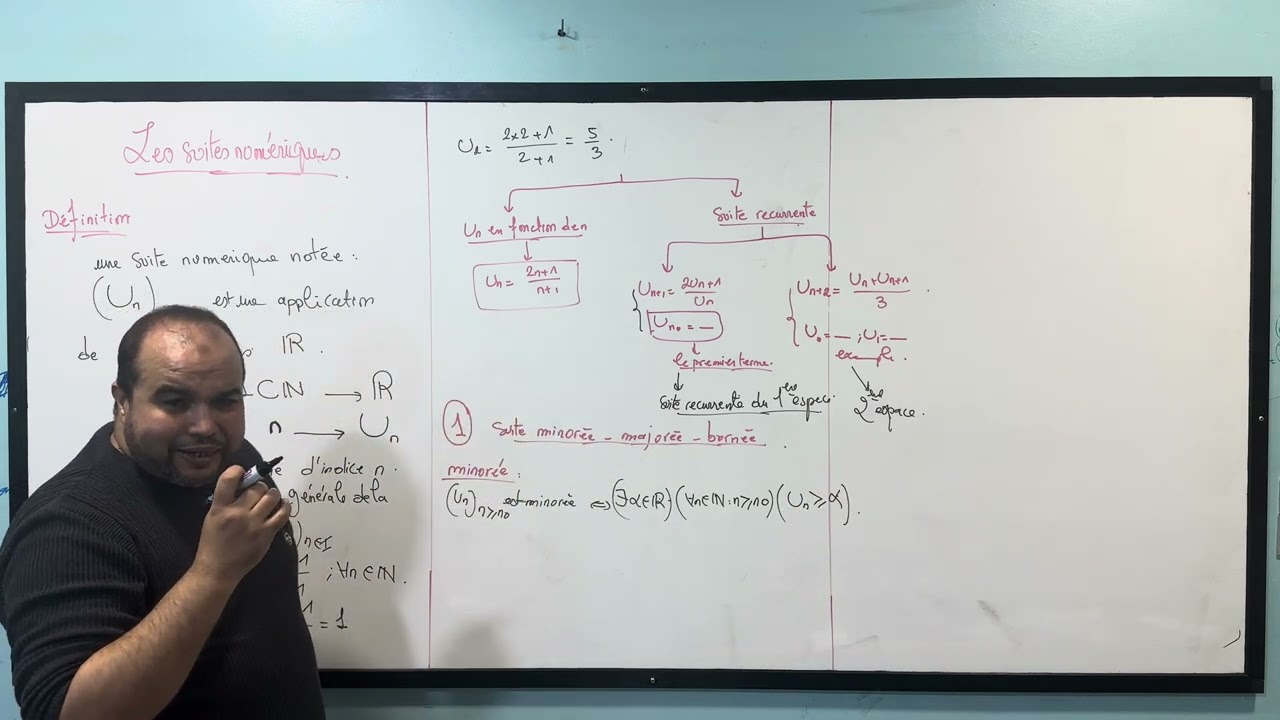 Les suites numériques
Définition
une suite numerique notée :
(Un) est une application
de IR.
CIN → IR
n → Un
d'indice n.
générale de la
)n∈I
; ∀n∈IN.
= 1
U2 = (2×2+1)/(2+1) = 5/3.
Un en fonction de n
Un = (2n+1)/(n+1)
Suite recurrente
Un+1 = (2Un+1)/Un
Un0 = —
le premier terme.
Suite recurrente du 1ère espece.
Un+2 = (Un+Un+1)/3.
U0 = — ; U1 = —
2ère espace.
1 Suite minorée - majorée - bornée.
minorée :
(Un)n⩾n0 est minorée ⇔ (∃α∈IR)(∀n∈IN : n⩾n0)(Un⩾α).